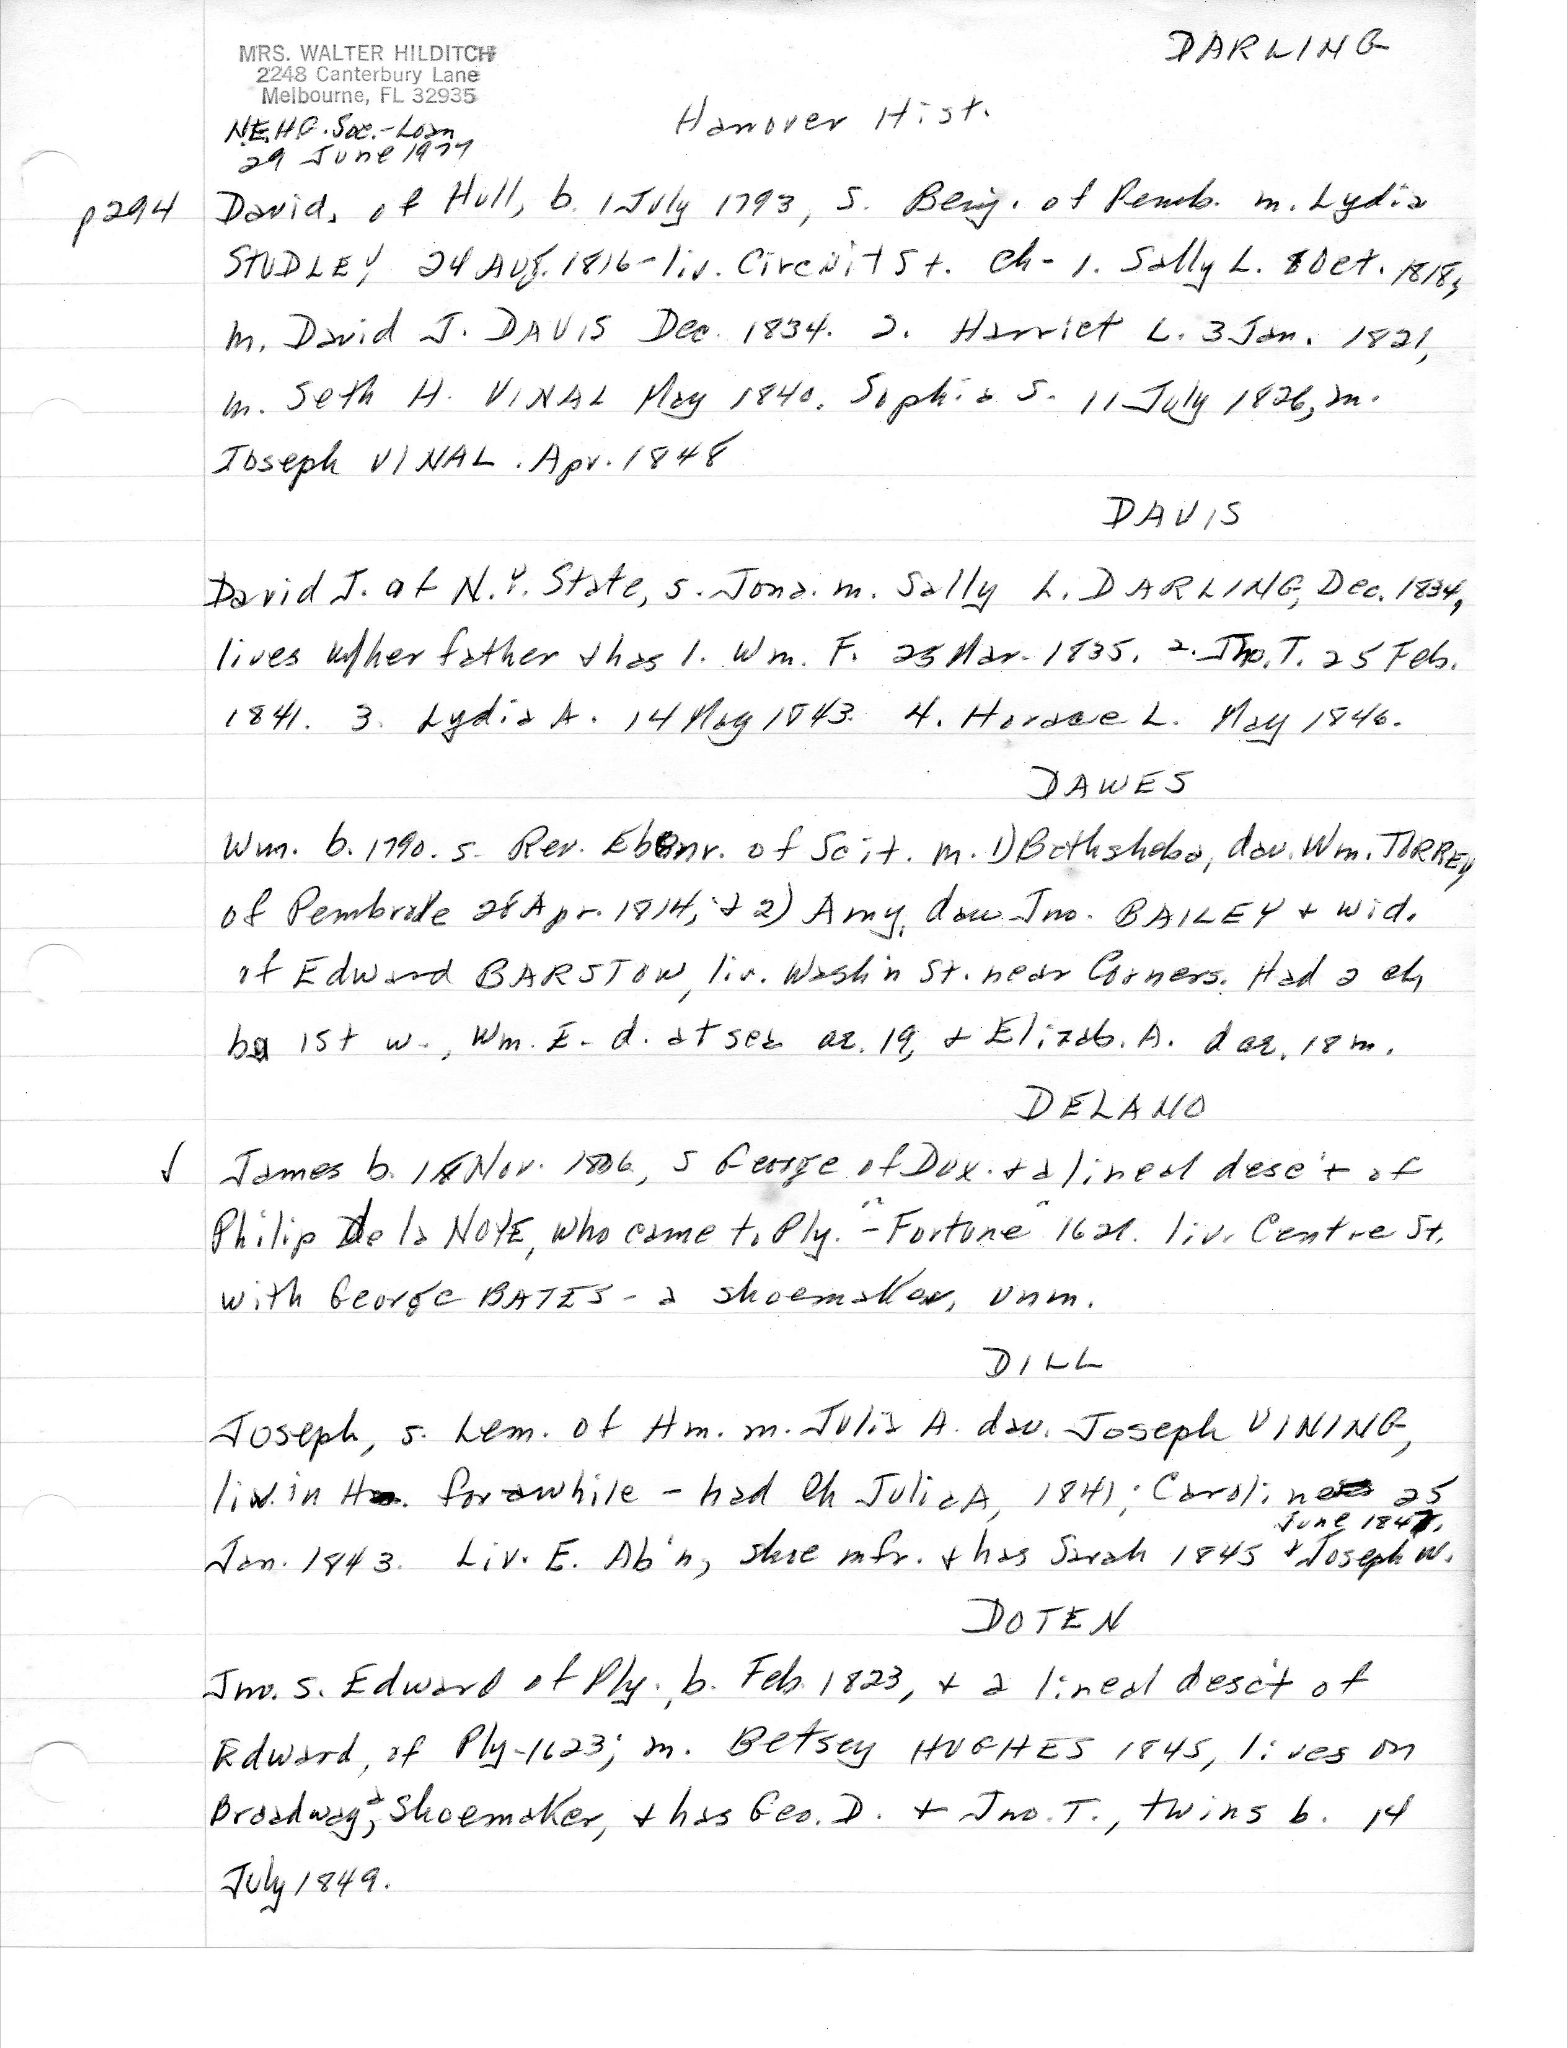 MRS. WALTER HILDITCH
2248 Canterbury Lane
Melbourne, FL 32935
N.E.H.G. Soc. - Loan
29 June 1977
DARLING
Hanover Hist.
p294 David, of Hull, b. 1 July 1793, s. Benj. of Pemb. m. Lydia
STUDLEY, 24 Aug. 1816 - liv. Circuit St. Ch - 1. Sally L. 8 Oct. 1818,
m. David J. DAVIS Dec. 1834. 2. Harriet L. 3 Jan. 1821,
m. Seth H. VINAL May 1840. Sophia S. 11 July 1826, m.
Joseph VINAL. Apr. 1848
DAVIS
David J. of N.Y. State, s. Jona. m. Sally L. DARLING, Dec. 1834,
lives w/her father + has 1. Wm. F. 25 Mar. 1835. 2. Jno. T. 25 Feb.
1841. 3. Lydia A. 14 May 1843. 4. Horace L. May 1846.
DAWES
Wm. b. 1790. s. Rev. Ebenr. of Scit. m. 1) Bathsheba, dau. Wm. TORREY
of Pembroke 28 Apr. 1814, + 2) Amy, dau Jno. BAILEY + wid.
of Edward BARSTOW, liv. Wash'n St. near Corners. Had 2 ch
by 1st w., Wm. E. d. at sea ae. 19, + Elizab. A. d ae. 18 m.
DELANO
√ James b. 18 Nov. 1806, s George of Dux. + a lineal desc't of
Philip De la NOYE, who came to Ply. "-Fortune" 1621. liv. Centre St.
with George BATES - a shoemaker, unm.
DILL
Joseph, s. Lem. of Hm. m. Julia A. dau. Joseph VINING,
liv. in for awhile - had Ch Julia A, 1841; Caroline 25
June 1847.
Jan. 1843. Liv. E. Ab'n, shoe mfr. + has Sarah 1845 + Joseph W.
DOTEN
Jno. s. Edward of Ply., b. Feb. 1823, + a lineal desc't of
Edward, of Ply - 1623; m. Betsey HUGHES 1845, lives on
Broadway, a Shoemaker, + has Geo. D. + Jno. T., twins b. 14
July 1849.